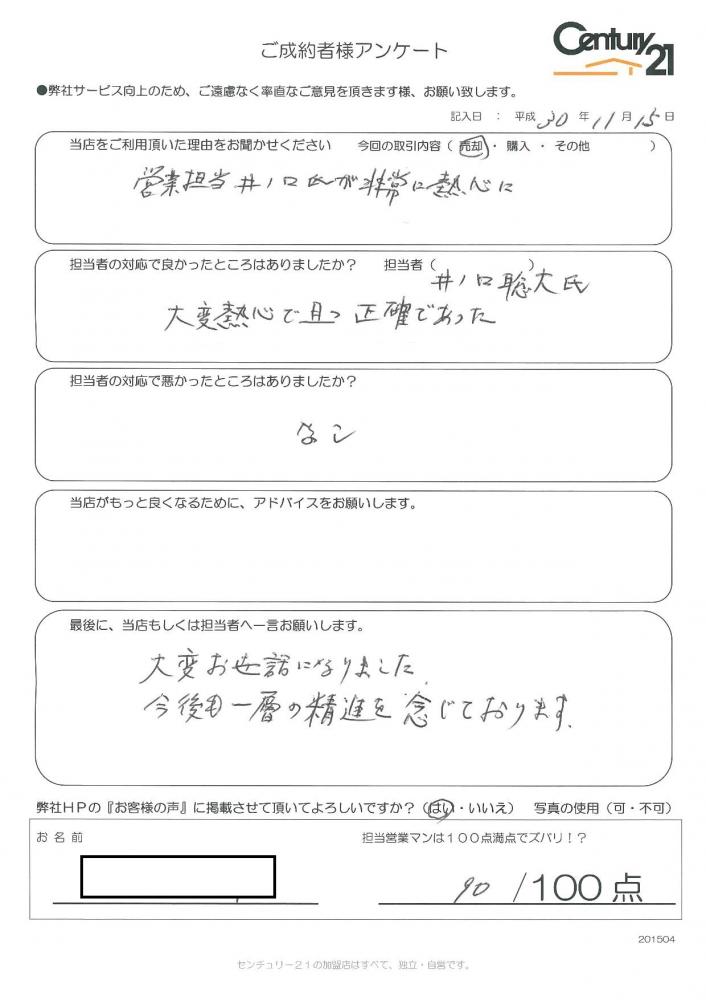 ご成約者様アンケート
Century 21
●弊社サービス向上のため、ご遠慮なく率直なご意見を頂きます様、お願い致します。
記入日 : 平成 30 年 11 月 15 日
当店をご利用頂いた理由をお聞かせください 今回の取引内容( 売却 ・ 購入 ・ その他 )
営業担当井ノ口氏が非常に熱心に
担当者の対応で良かったところはありましたか? 担当者( )
井ノ口聡大氏
大変熱心で且つ正確であった
担当者の対応で悪かったところはありましたか?
なし
当店がもっと良くなるために、アドバイスをお願いします。
最後に、当店もしくは担当者へ一言お願いします。
大変お世話になりました.
今後も一層の精進を念じております.
弊社HPの『お客様の声』に掲載させて頂いてよろしいですか?(はい・いいえ) 写真の使用(可・不可)
お名前
担当営業マンは100点満点でズバリ!?
90 /100点
201504
センチュリー21の加盟店はすべて、独立・自営です。